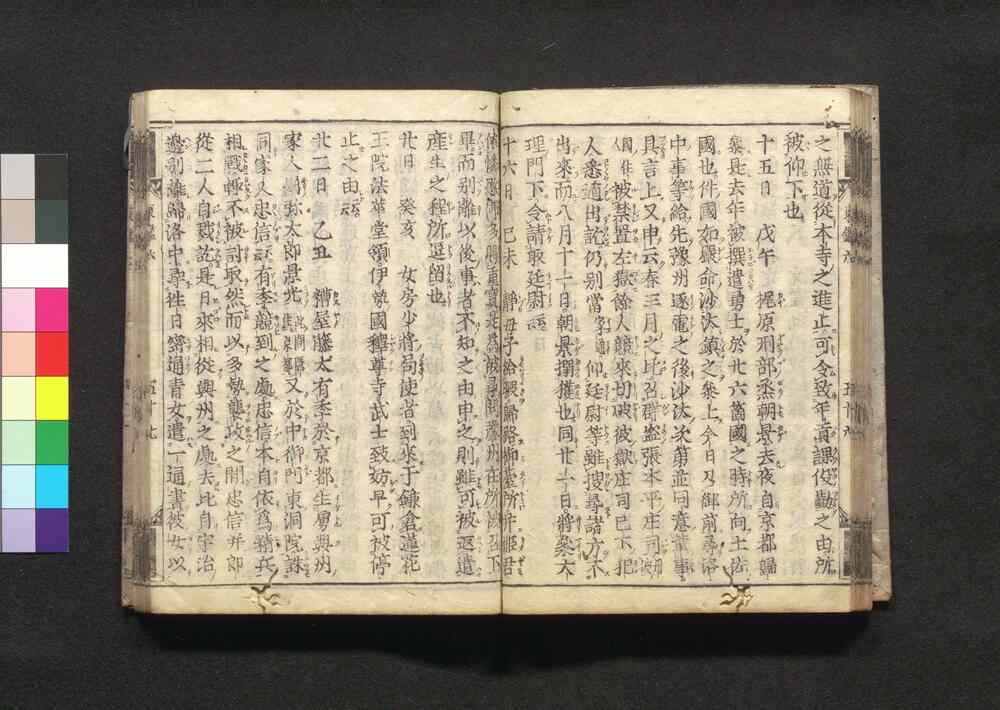 之無道從本寺之進止可令致年貢課役勤之由所
被仰下也
十五日　戊午　梶原刑部丞朝景去夜自京都歸
參是去年被撰遣勇士於廿六箇國之時所向土佐
國也件國如嚴命沙汰鎮之參上今日又御前尋洛
中事等給先豫州逐電之後沙汰次第並同意輩事
具言上又申云季三月之比召群盗張本平庄司
被禁置左獄餘人競來切破彼獄庄司已下犯
人悉遁出訖仍別當 仰廷尉等雖捜尋諸方不
出來而八月十一日朝景搦獲也同廿一日將參大
理門下令請取廷尉云云
十六日　己未　靜母子給暇歸洛御臺所并姫君
依憐愍御多賜重寶是為被尋問豫州在所被召下
畢而別離以後事者不知之由申之則雖可被返遣
產生之程所逗留也
廿日　癸亥　女房少將局使者到來于鎌倉蓮花
王院法華堂領伊勢國釋尊寺武士致妨早可被停
止之由云云
廿二日　乙丑　糟屋藤太有季於京都生虜與州
家人堀弥太郎景光 又於中御門東洞院誅
同家人忠信云云有季競到之處忠信本自依為精兵
相戰輙不被討取然而以多勢襲攻之間忠信并郎
從二人自戕訖是日來相從與州之處去比自宇治
邊別離歸洛中尋往日密通青女遣一通書彼女以